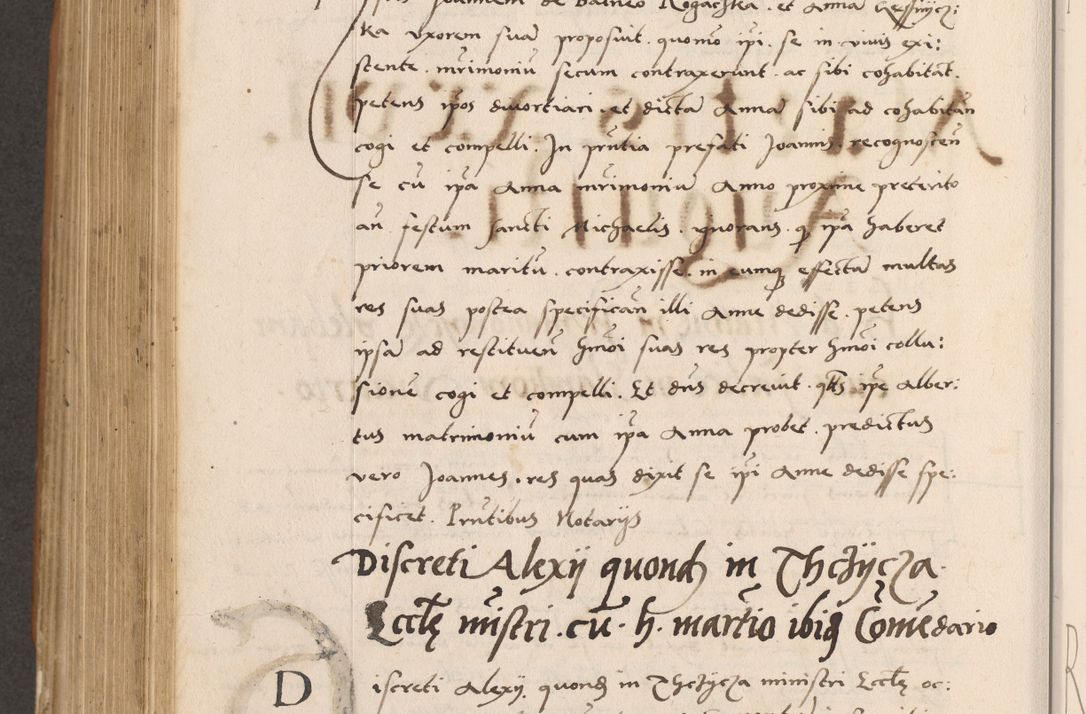 Joannem de Balneo Rogaczka. et Anna
ka uxorem suā proposuit. quomō ipi. se in vivis exi:
stente. mrimoniū secum contraxerunt. ac sibi cohabitāt.
petens ipos divortiari. et dictā Annā sibi ad cohabitāň
cogi et compelli. In prūtia prefati Joannis. recognosceň
se cū ipa Anna mrimoniū Anno proxime preterito
añ festum sancti Michaelis. ignorans. q̃ ipā haberet
priorem maritū. contraxisse. in eumq effectū multas
res suas postea specificañ illi Anne dedisse. petens
ipsā ad restituenđ hmōi suas res propter hmōi collu:
sionē cogi et compelli. Et dñs decrevit. qts ipe Alber:
tus matrimoniū cum ipā Anna probet. predictus
vero Joannes. res quas dixit se ipi Anne dedisse spe:
cificet. Prñtibus Notarijs
Discreti Alexij quonđ in Thczÿcza.
Ecctę mīstri. cū. h. martio ibiq Comēdario
D iscreti Alexÿ. quonđ in Thczÿcza ministri Ecctę oc: